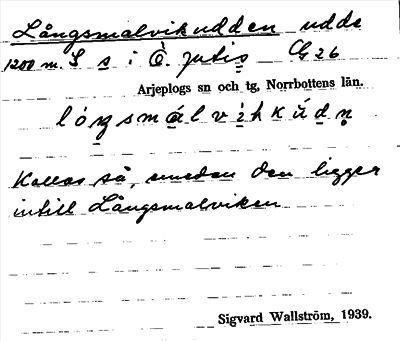 Långsmalvikudden udde
1200 m. S s i Ö. Jutis Cg 26
Arjeplogs sn och tg, Norrbottens län.
Kallas så, emedan den ligger
intill Långsmalviken
Sigvard Wallström, 1939.